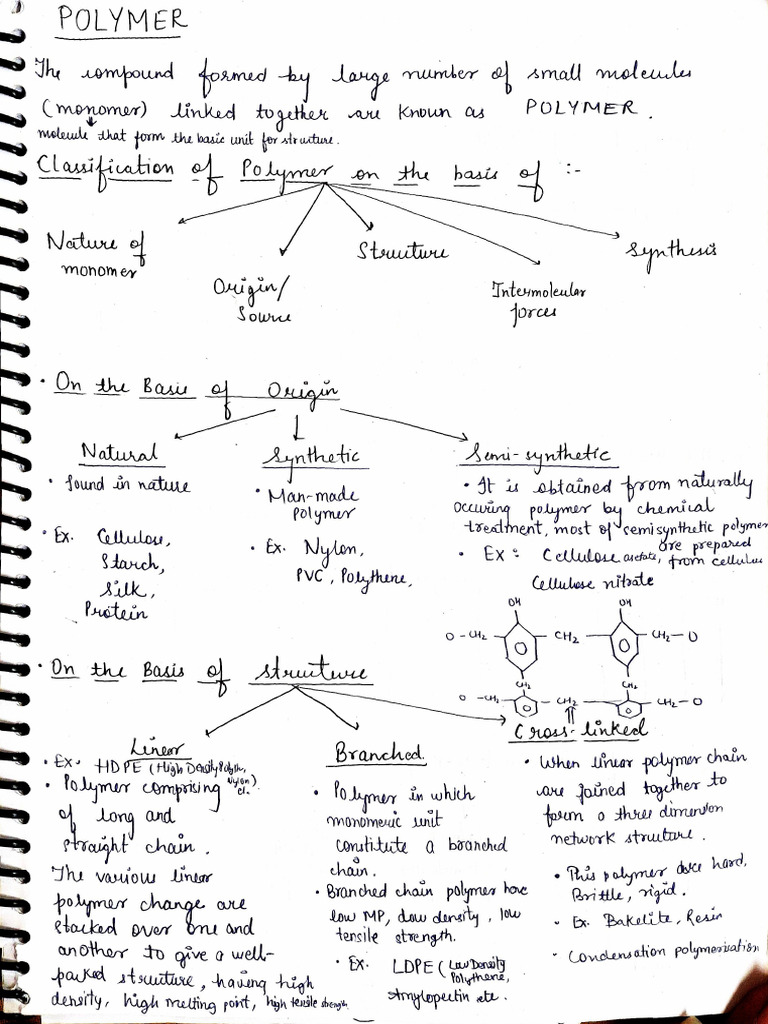 POLYMER
The compound formed by large number of small molecules
(monomer) linked together are known as POLYMER.
molecule that form the basic unit for structure.
Classification of Polymer on the basis of :-
Nature of
monomer
Origin/
Source
Structure
Intermolecular
forces
Synthesis
• On the Basis of Origin
Natural
• found in nature
• Ex. Cellulose,
Starch,
Silk,
Protein
Synthetic
• Man-made
polymer
• Ex. Nylon,
PVC, Polythene,
Semi-synthetic
• It is obtained from naturally
occuring polymer by chemical
treatment, most of semisynthetic polymer
are prepared
from cellulose
• Ex: Cellulose acetate,
Cellulose nitrate
OH OH
O-CH₂ CH₂ CH₂-O
CH₂ CH₂
O-CH₂ CH₂ CH₂-O
• On the Basis of structure
Linear
• Ex. HDPE (High Density Polythene,
Nylon)
• Polymer comprising
of long and
straight chain.
The various linear
polymer change are
stacked over one and
another to give a well-
packed structure, having high
density, high melting point, high tensile strength.
Branched
• Polymer in which
monomeric unit
constitute a branched
chain.
• Branched chain polymer have
low MP, low density, low
tensile strength.
• Ex. LDPE (Low Density
Polythene,
Amylopectin etc.
Cross-linked
• When linear polymer chain
are joined together to
form a three dimension
network structure.
• This polymer are hard,
Brittle, rigid.
• Ex. Bakelite, Resin
• Condensation polymerisation